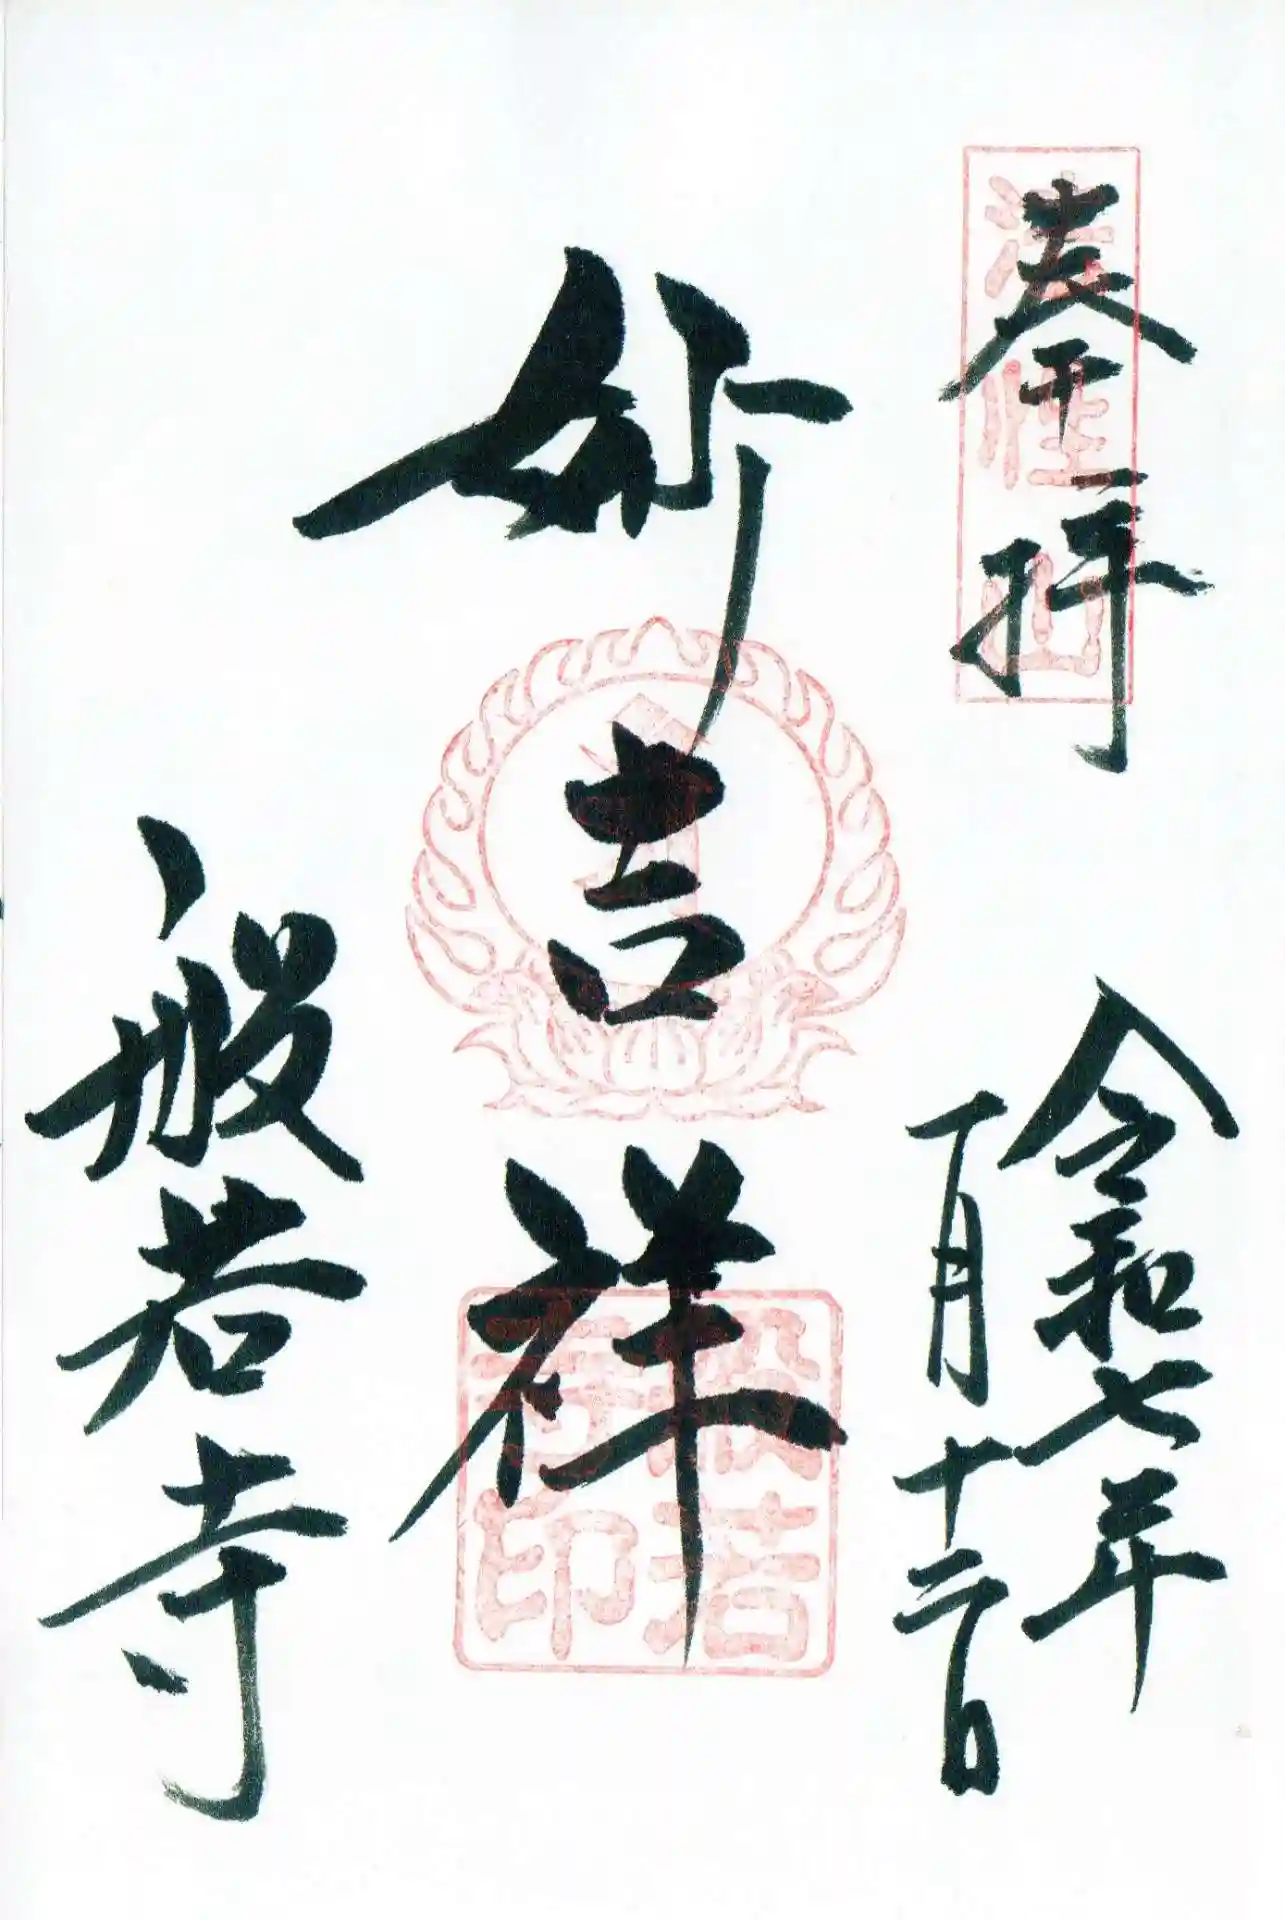 奉拝
法性山
令和七年
一月十二日
妙吉祥
般若
寺印
般若寺